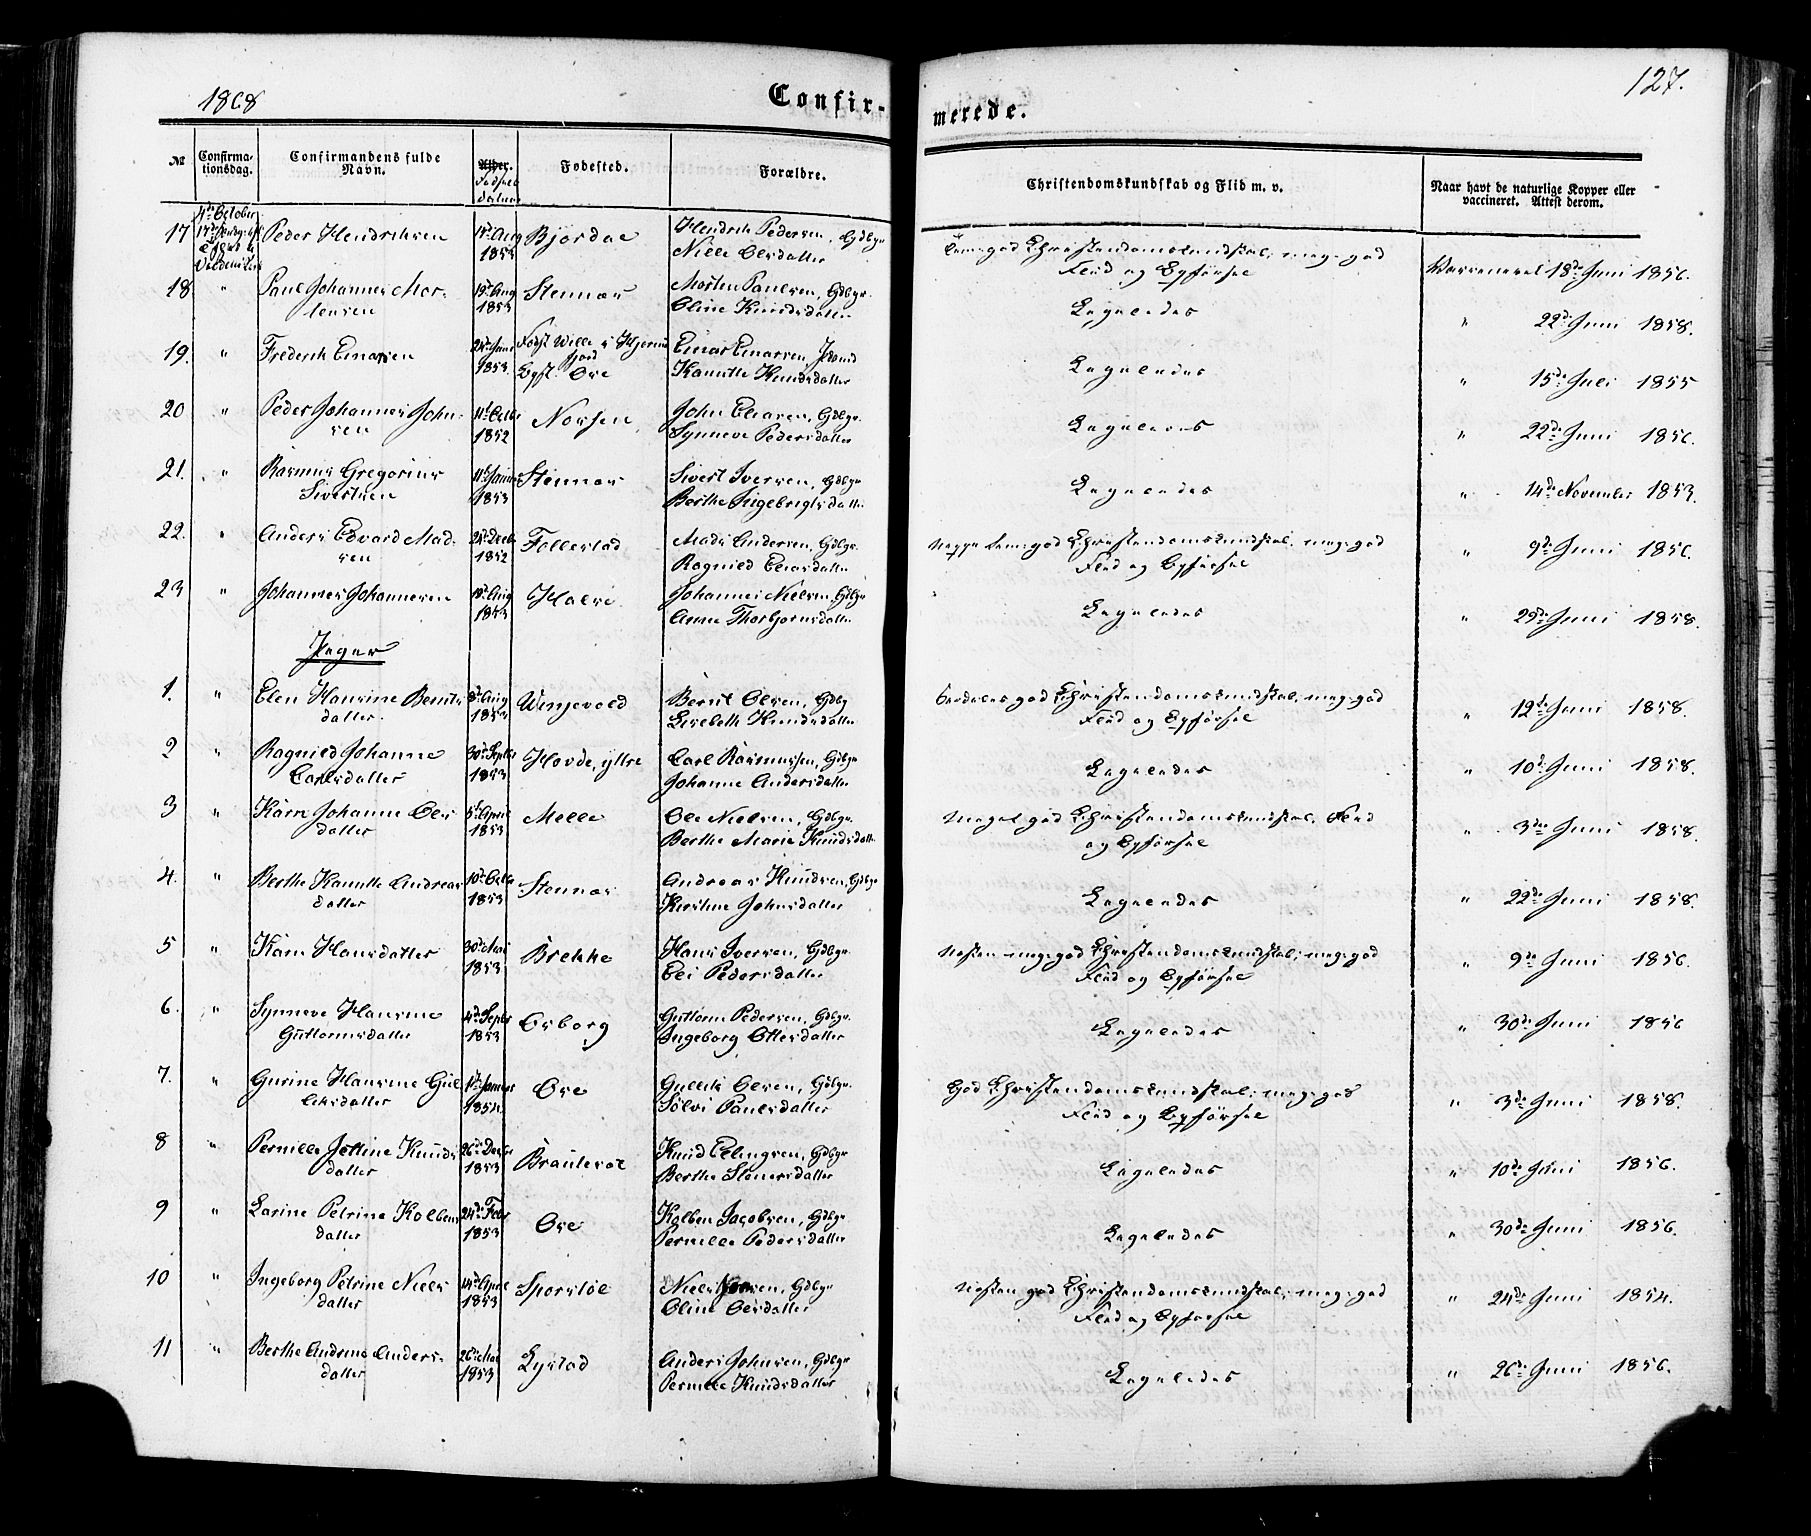 1868
Confir-
merede.
127.
№
Confirma-
tionsdag.
Confirmandens fulde
Navn.
Alder.
Fødsels
datum
Fødested.
Forældre.
Christendomskundskab og Flid m. v.
Naar havt de naturlige Kopper eller
vaccineret. Attest derom.
17 4de October Peder Hendriksen Aug 1853 Bjørdal Hendrik Pedersen, Gdbgr
Nille Olsdatter
god Christendomskundskab; meg: god
Flid og Opførsel
Vaccineret 18de Juni 1856.
18 " Paul Johannes Mor-
tensen
19de Aug 1853 Stennæs Morten Paulsen, Gdbgr.
Oline Knudsdatter
Ligeledes
" 22de Juni 1858.
19. " Frederik Einarsen 24de 1853. Født Wille i
Opf. Øre
Einar Einarsen
Kanutte Knudsdatter
Ligeledes
" 15de Juli 1855
20 " Peder Johannes John-
sen
11te Octbr 1852 Norsen John Eliasen, Gdbgr.
Synneve Pedersdatter
Ligeledes
" 22de Juni 1856.
21. " Rasmus Gregorius
Sivertsen
1853 Stennæs Sivert Iversen, Gdbgr
Berthe Ingebrigtsdatter
Ligeledes
" 14de November 1853.
22. " Anders Edvard Mad-
sen
Decbr 1852 Follestad Mads Andersen, Gdbgr.
Ragnild Eliasdatter
Neppe god Christendomskundskab; meg: god
Flid og Opførsel
" 9de Juni 1856.
23 " Johannes Johannesen Aug 1853 Halsi Johannes Nielsen, Gdbgr
Anne Thorbjørnsdatter
Ligeledes
" 29de Juni 1858.
Piger
1. " Elen Hansine Bernts-
datter.
8de Aug 1853 Wengevold Bernt Olsen, Gdbg
Lisebeth Knudsdatter
god Christendomskundskab, meg: god
Flid og Opførsel
" 12te Juni 1858.
2 " Ragnild Johanne
Carlsdatter
30de Septbr 1853. Hovde, ytre Carl Rasmussen, Gdbgr
Johanne Andersdatter
Ligeledes
" 10de Juni 1858.
3 " Karn Johanne Ols-
datter
5te April 1853 Melle Ole Nielsen, Gdbgr.
Berthe Marie Knudsdatter
Meget god Christendomskundskab, Flid
og Opførsel
" 3die Juni 1858.
4. " Berthe Kanutte Andreas-
datter
10de Octbr 1853 Stennæs Andreas Knudsen, Gdbgr
Kirstine Johnsdatter
Ligeledes
" 22de Juni 1858.
5 " Karn Hansdatter 30de Mai 1853 Brekke Hans Iversen, Gdbgr
Eli Pedersdatter
Næsten meg: god Christendomskundskab; meg: god
Flid og Opførsel
" 9de Juni 1856.
6. " Synneve Hansine
Guttormsdatter
4de Septbr 1853 Osborg Guttorm Pedersen, Gdbgr.
Ingeborg Ottesdatter
Ligeledes
" 30de Juni 1856
7. " Gurine Hansine Gul-
liksdatter
1854. Øre Gullik Olsen, Gdbgr.
Sølvi Paulsdatter
God Christendomskundskab; meg: god
Flid og Opførsel
" 3die Juni 1858.
8 " Pernille Jettine Knuds-
datter
26de Decbr 1853 Brautesøt Knud Ellingsen, Gdbgr
Berthe Stenersdatter
Ligeledes
" 10de Juni 1856.
9 " Larine Petrine Kolbens-
datter
24de Febr 1853 Øre Kolben Jacobsen, Gdbgr
Pernille Pedersdatter
Ligeledes
" 30de Juni 1856.
10 " Ingeborg Petrine Niels-
datter
14de April 1853 Sporstøl Niels Gdbgr
Oline Olsdatter
Næsten god Christendomskundskab; meg: god
Flid og Opførsel
" 24de Juni 1854.
11 " Berthe Andrine Anders-
datter
26de Mai 1853 Lystad Anders Johnsen, Gdbgr
Pernille Knudsdatter
Ligeledes
" 26de Juni 1856.